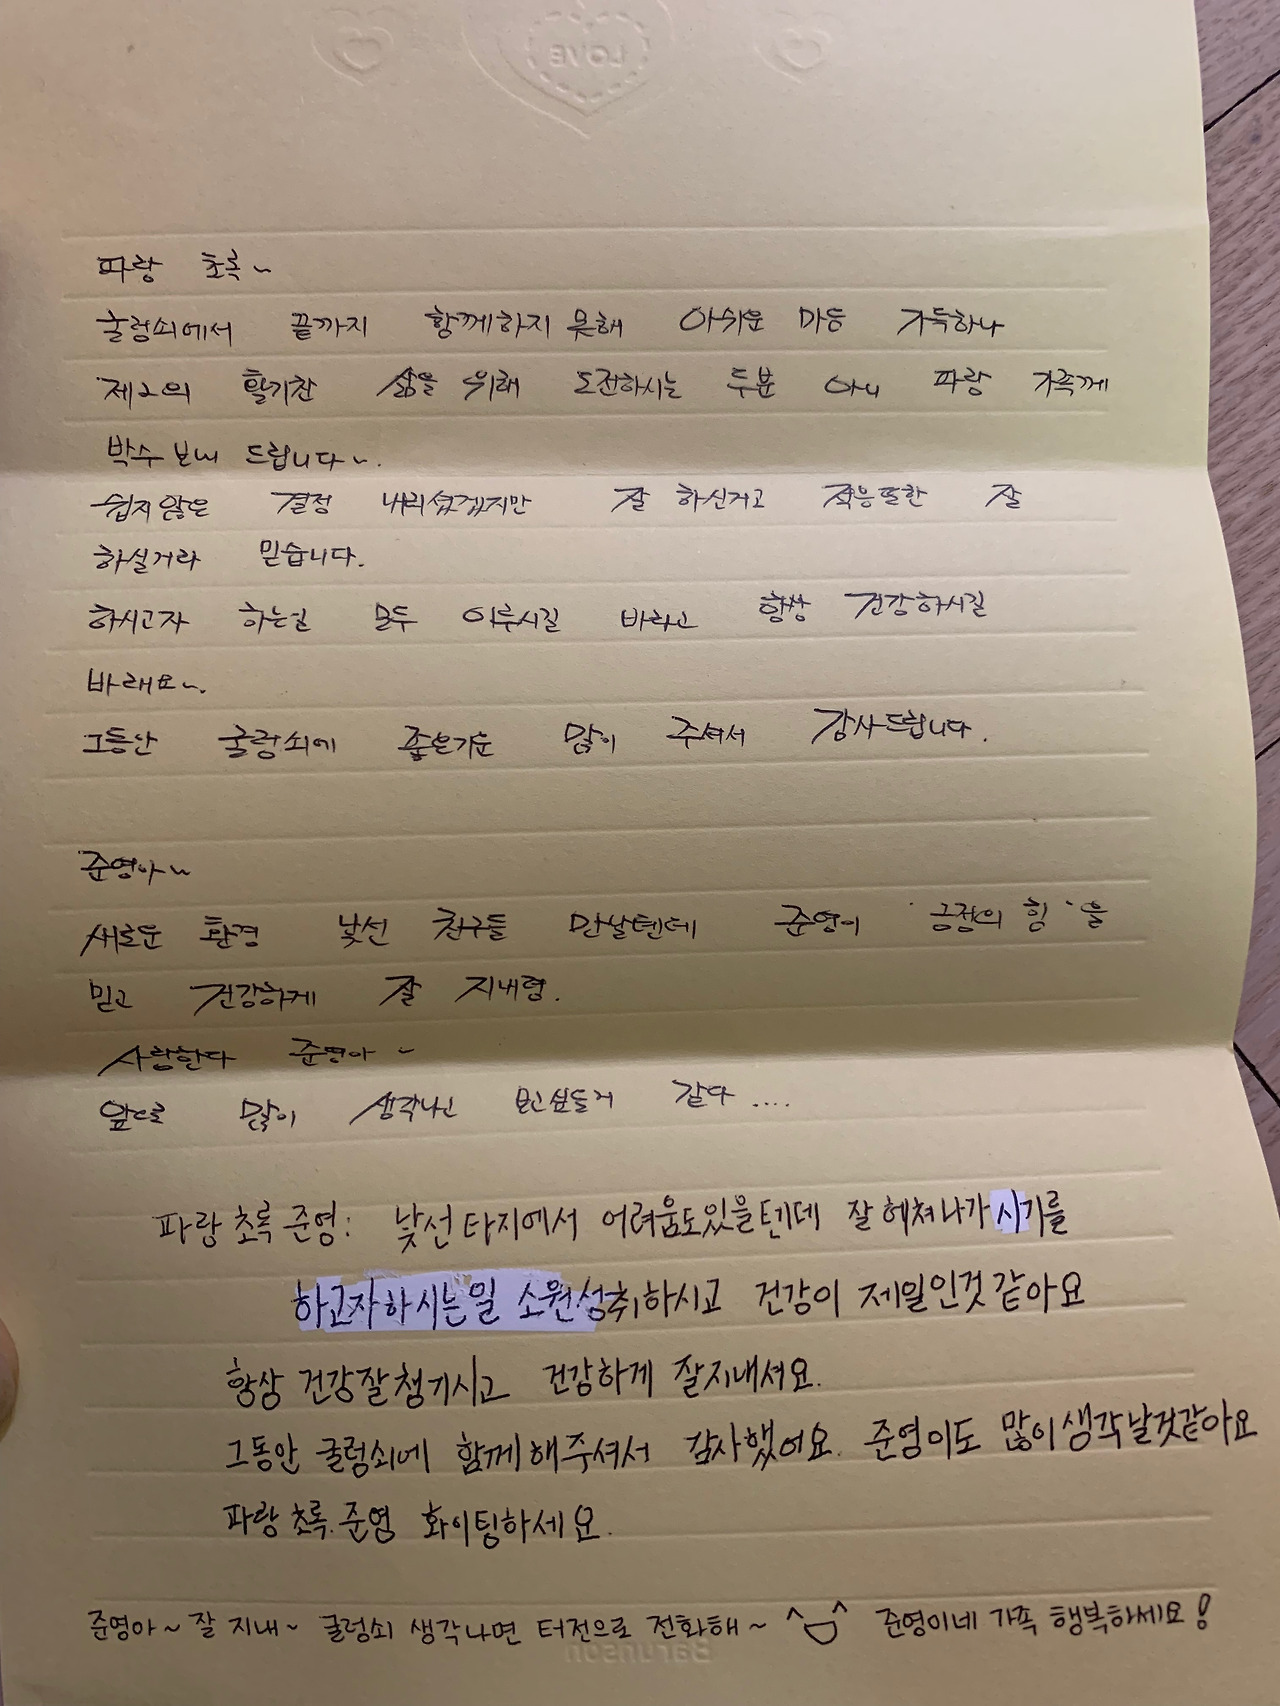 LOVE
파랑 초록~
굴렁쇠에서 끝까지 함께하지 못해 아쉬운 마음 가득하나
제2의 활기찬 삶을 위해 도전하시는 두분 아니 파랑 가족께
박수 보내 드립니다~.
쉽지않은 결정 내리셨겠지만 잘 하신거고 적응또한 잘
하실거라 믿습니다.
하시고자 하는일 모두 이루시길 바라고 항상 건강하시길
바래요~.
그동안 굴렁쇠에 좋은기운 많이 주셔서 감사드립니다.
준영아~
새로운 환경 낯선 친구들 만날텐데 준영이 '긍정의 힘'을
믿고 건강하게 잘 지내렴.
사랑한다 준영아~
앞으로 많이 생각나고 보고싶을거 같다....
파랑 초록 준영: 낯선타지에서 어려움도있을텐데 잘헤쳐나가시기를
하고자하시는일 소원성취하시고 건강이 제일인것 같아요
항상 건강잘챙기시고 건강하게 잘지내셔요.
그동안 굴렁쇠에 함께해주셔서 감사했어요. 준영이도 많이생각날것같아요
파랑 초록.준영 화이팅하세요.
준영아~ 잘 지내~ 굴렁쇠 생각나면 터전으로 전화해~ ^ㅂ^ 준영이네 가족 행복하세요!
Barunson